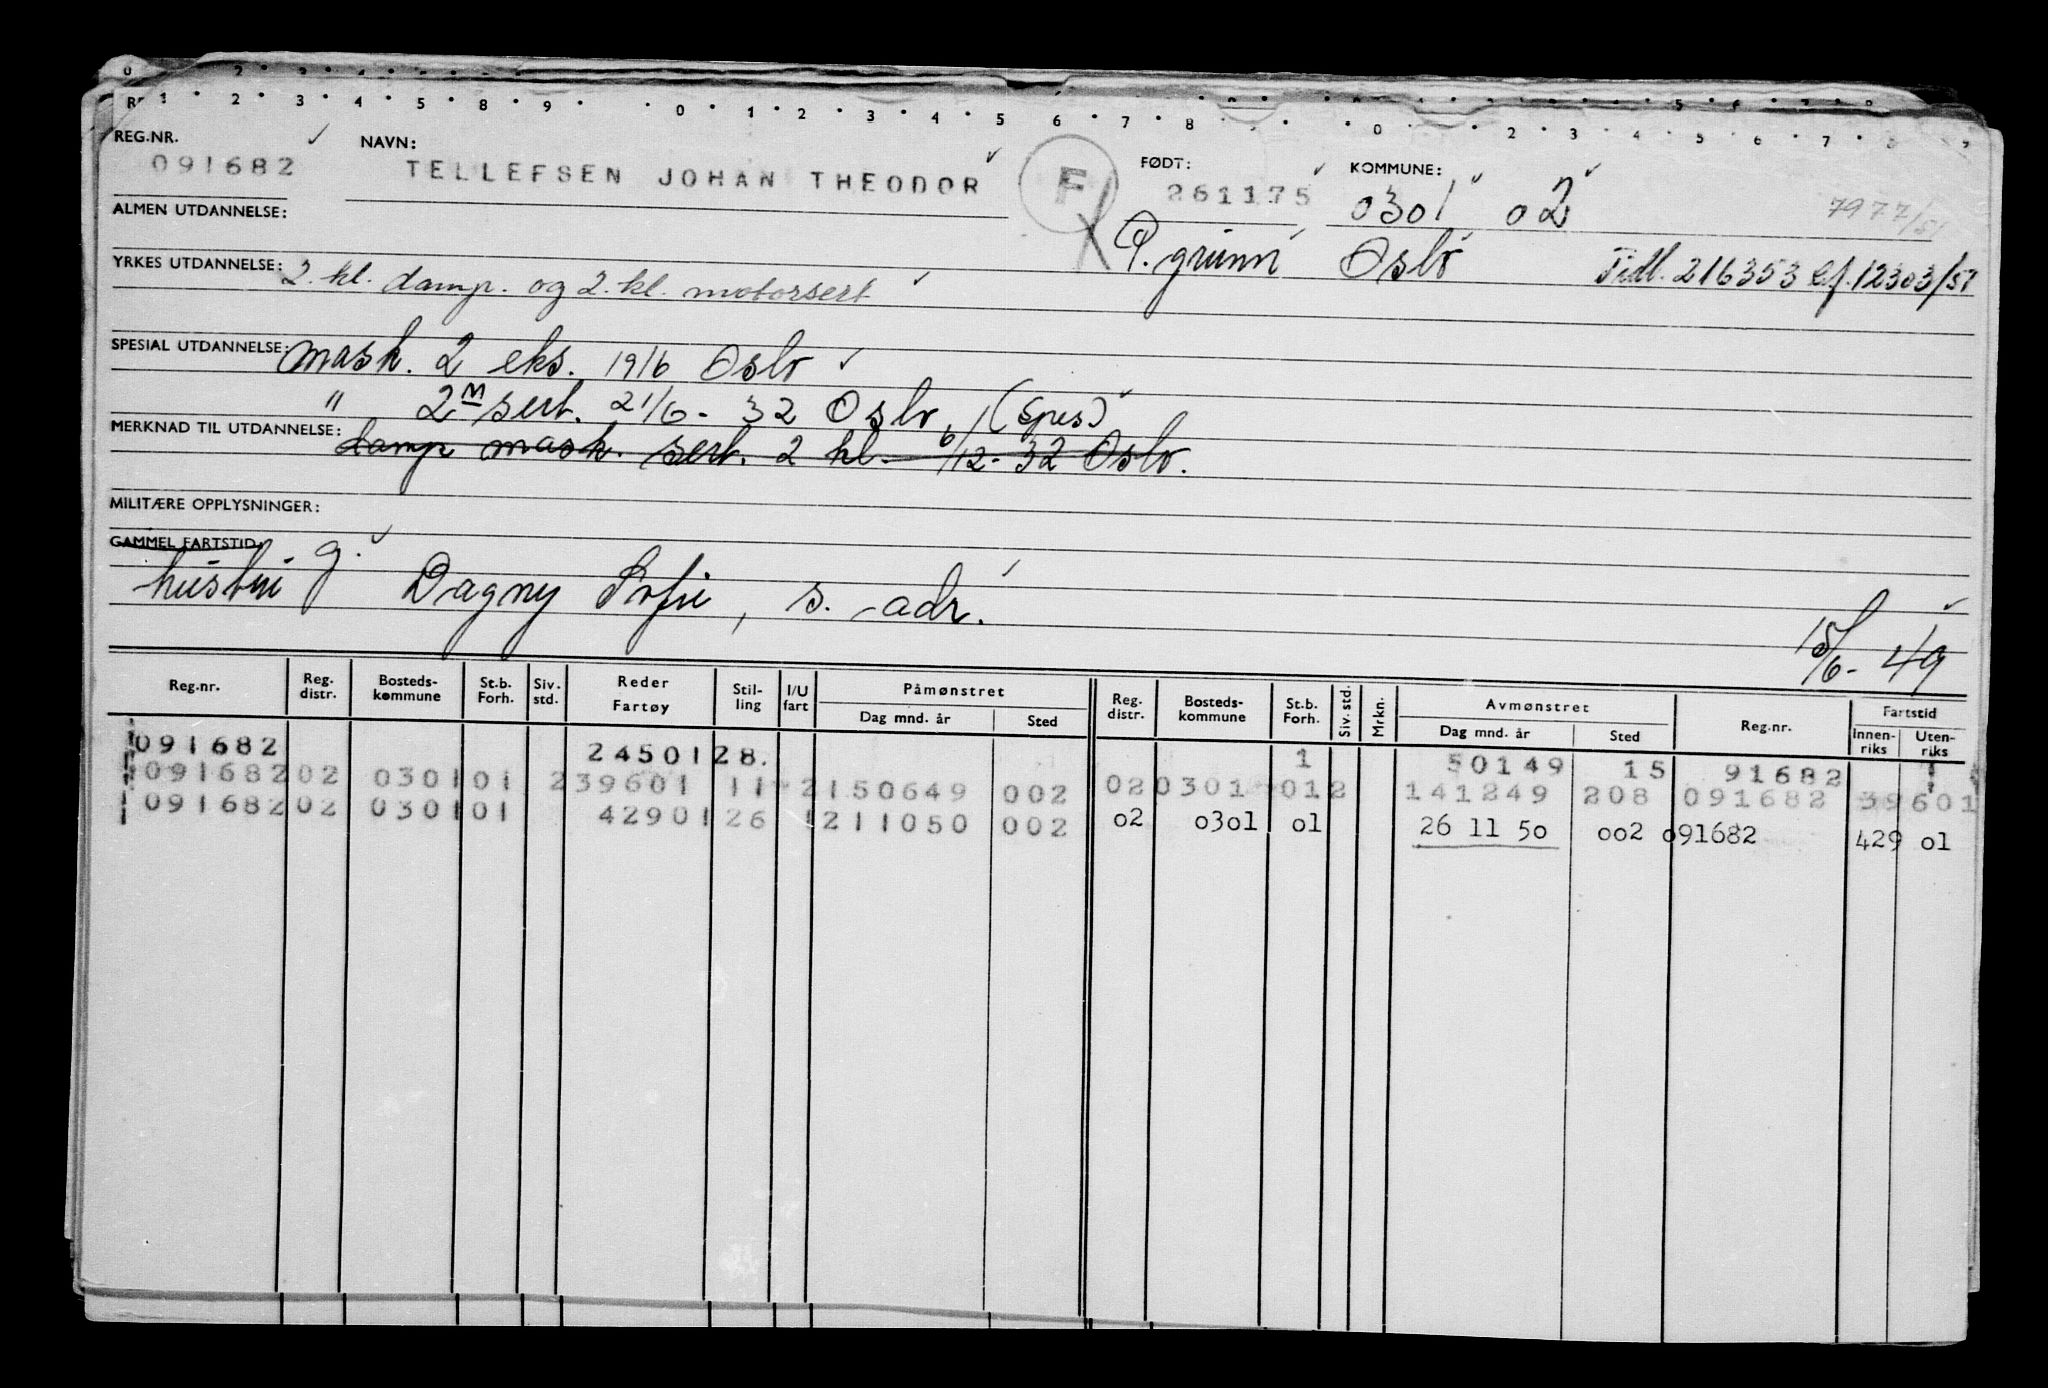 REG.NR. NAVN: FØDT: KOMMUNE:
091682 TELLEFSEN JOHAN THEODOR F 261175 0301 02 7977/51
ALMEN UTDANNELSE:
P. grunn Oslo Tidl. 216353 cf. 12303/51
YRKES UTDANNELSE: 2. kl. damp. og 2. kl. motorsert
SPESIAL UTDANNELSE: mask. 2 eks. 1916 Oslo
" 2 M sert. 21/6- 32 Oslo, (Spes)
MERKNAD TIL UTDANNELSE: damp mask. sert. 2 kl. 6/12- 32 Oslo.
MILITÆRE OPPLYSNINGER:
GAMMEL FARTSTID: g.
hustru Dagny Sofie, s. adr.
15/6- 49
Reg.nr. Reg. distr. Bosteds-kommune St.b. Forh. Siv. std. Reder Fartøy Stil-ling I/U fart Påmønstret Dag mnd. år Sted Reg. distr. Bosteds-kommune St.b. Forh. Siv. std. Mrkn. Avmønstret Dag mnd. år Sted Reg.nr. Fartstid Innen-riks Uten-riks
091682 2450128. 1 50149 15 91682
091682 02 0301 01 239601 11 2150649 002 02 0301 012 141249 208 091682 39601
091682 02 0301 01 42901 26 1211050 002 02 0301 01 26 11 50 002 091682 429 01